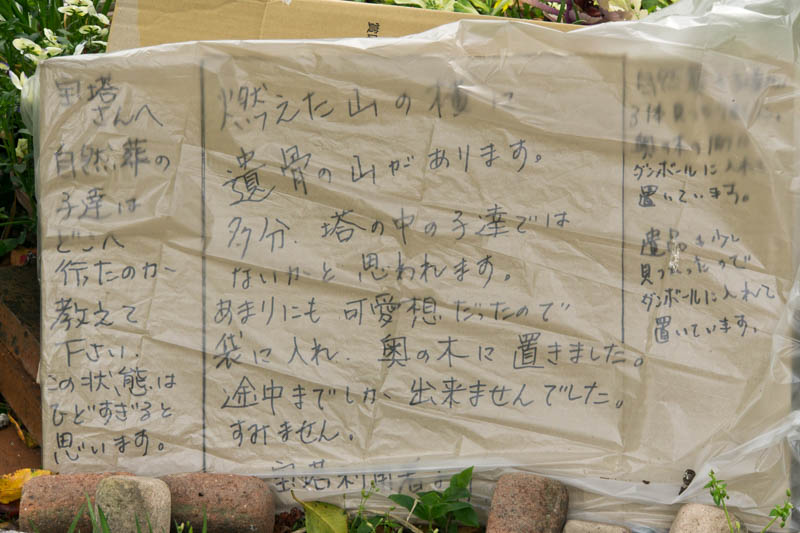 宝塔
さんへ
自然葬の
子達は
どこへ
行ったのか
教えて
下さい.
この状態は
ひどすぎると
思います。
燃えた山の横に
遺骨の山があります。
多分、塔の中の子達では
ないかと思われます。
あまりにも可愛想だったので
袋に入れ、奥の木に置きました。
途中までしか出来ませんでした。
すみません。
宝塔利用者
自然葬の
奥の木の
ダンボールに入れて
置いています。
遺品も少し
見つかったので
ダンボールに入れて
置いています。